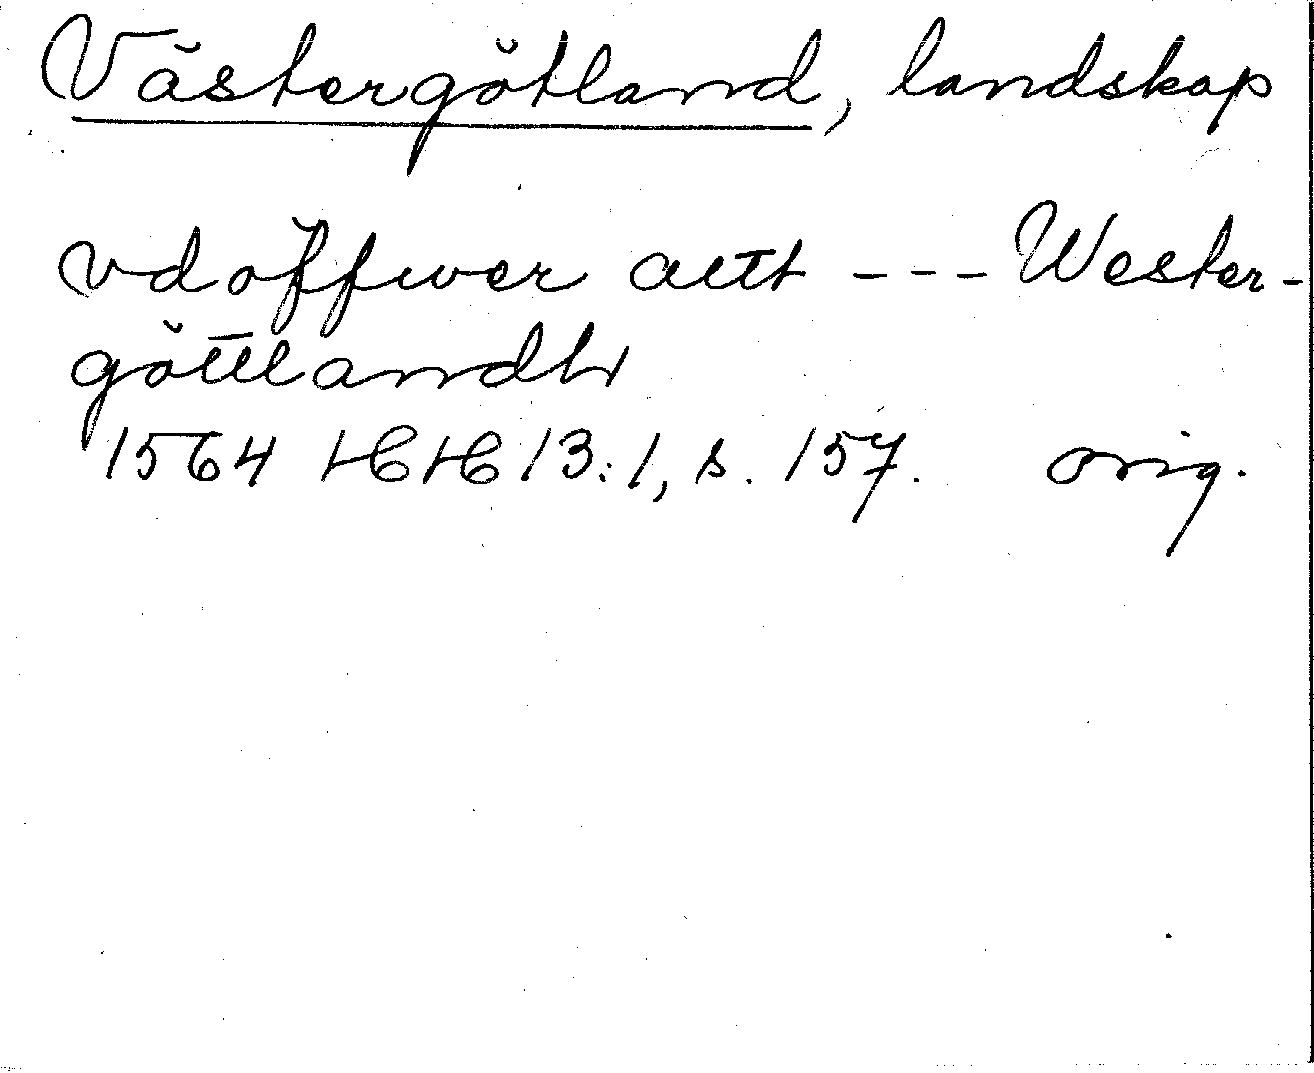 Västergötland, landskap
vdöffwer altt --- Wester-
göttlandh
1564 HH 13:1, s. 157. orig.